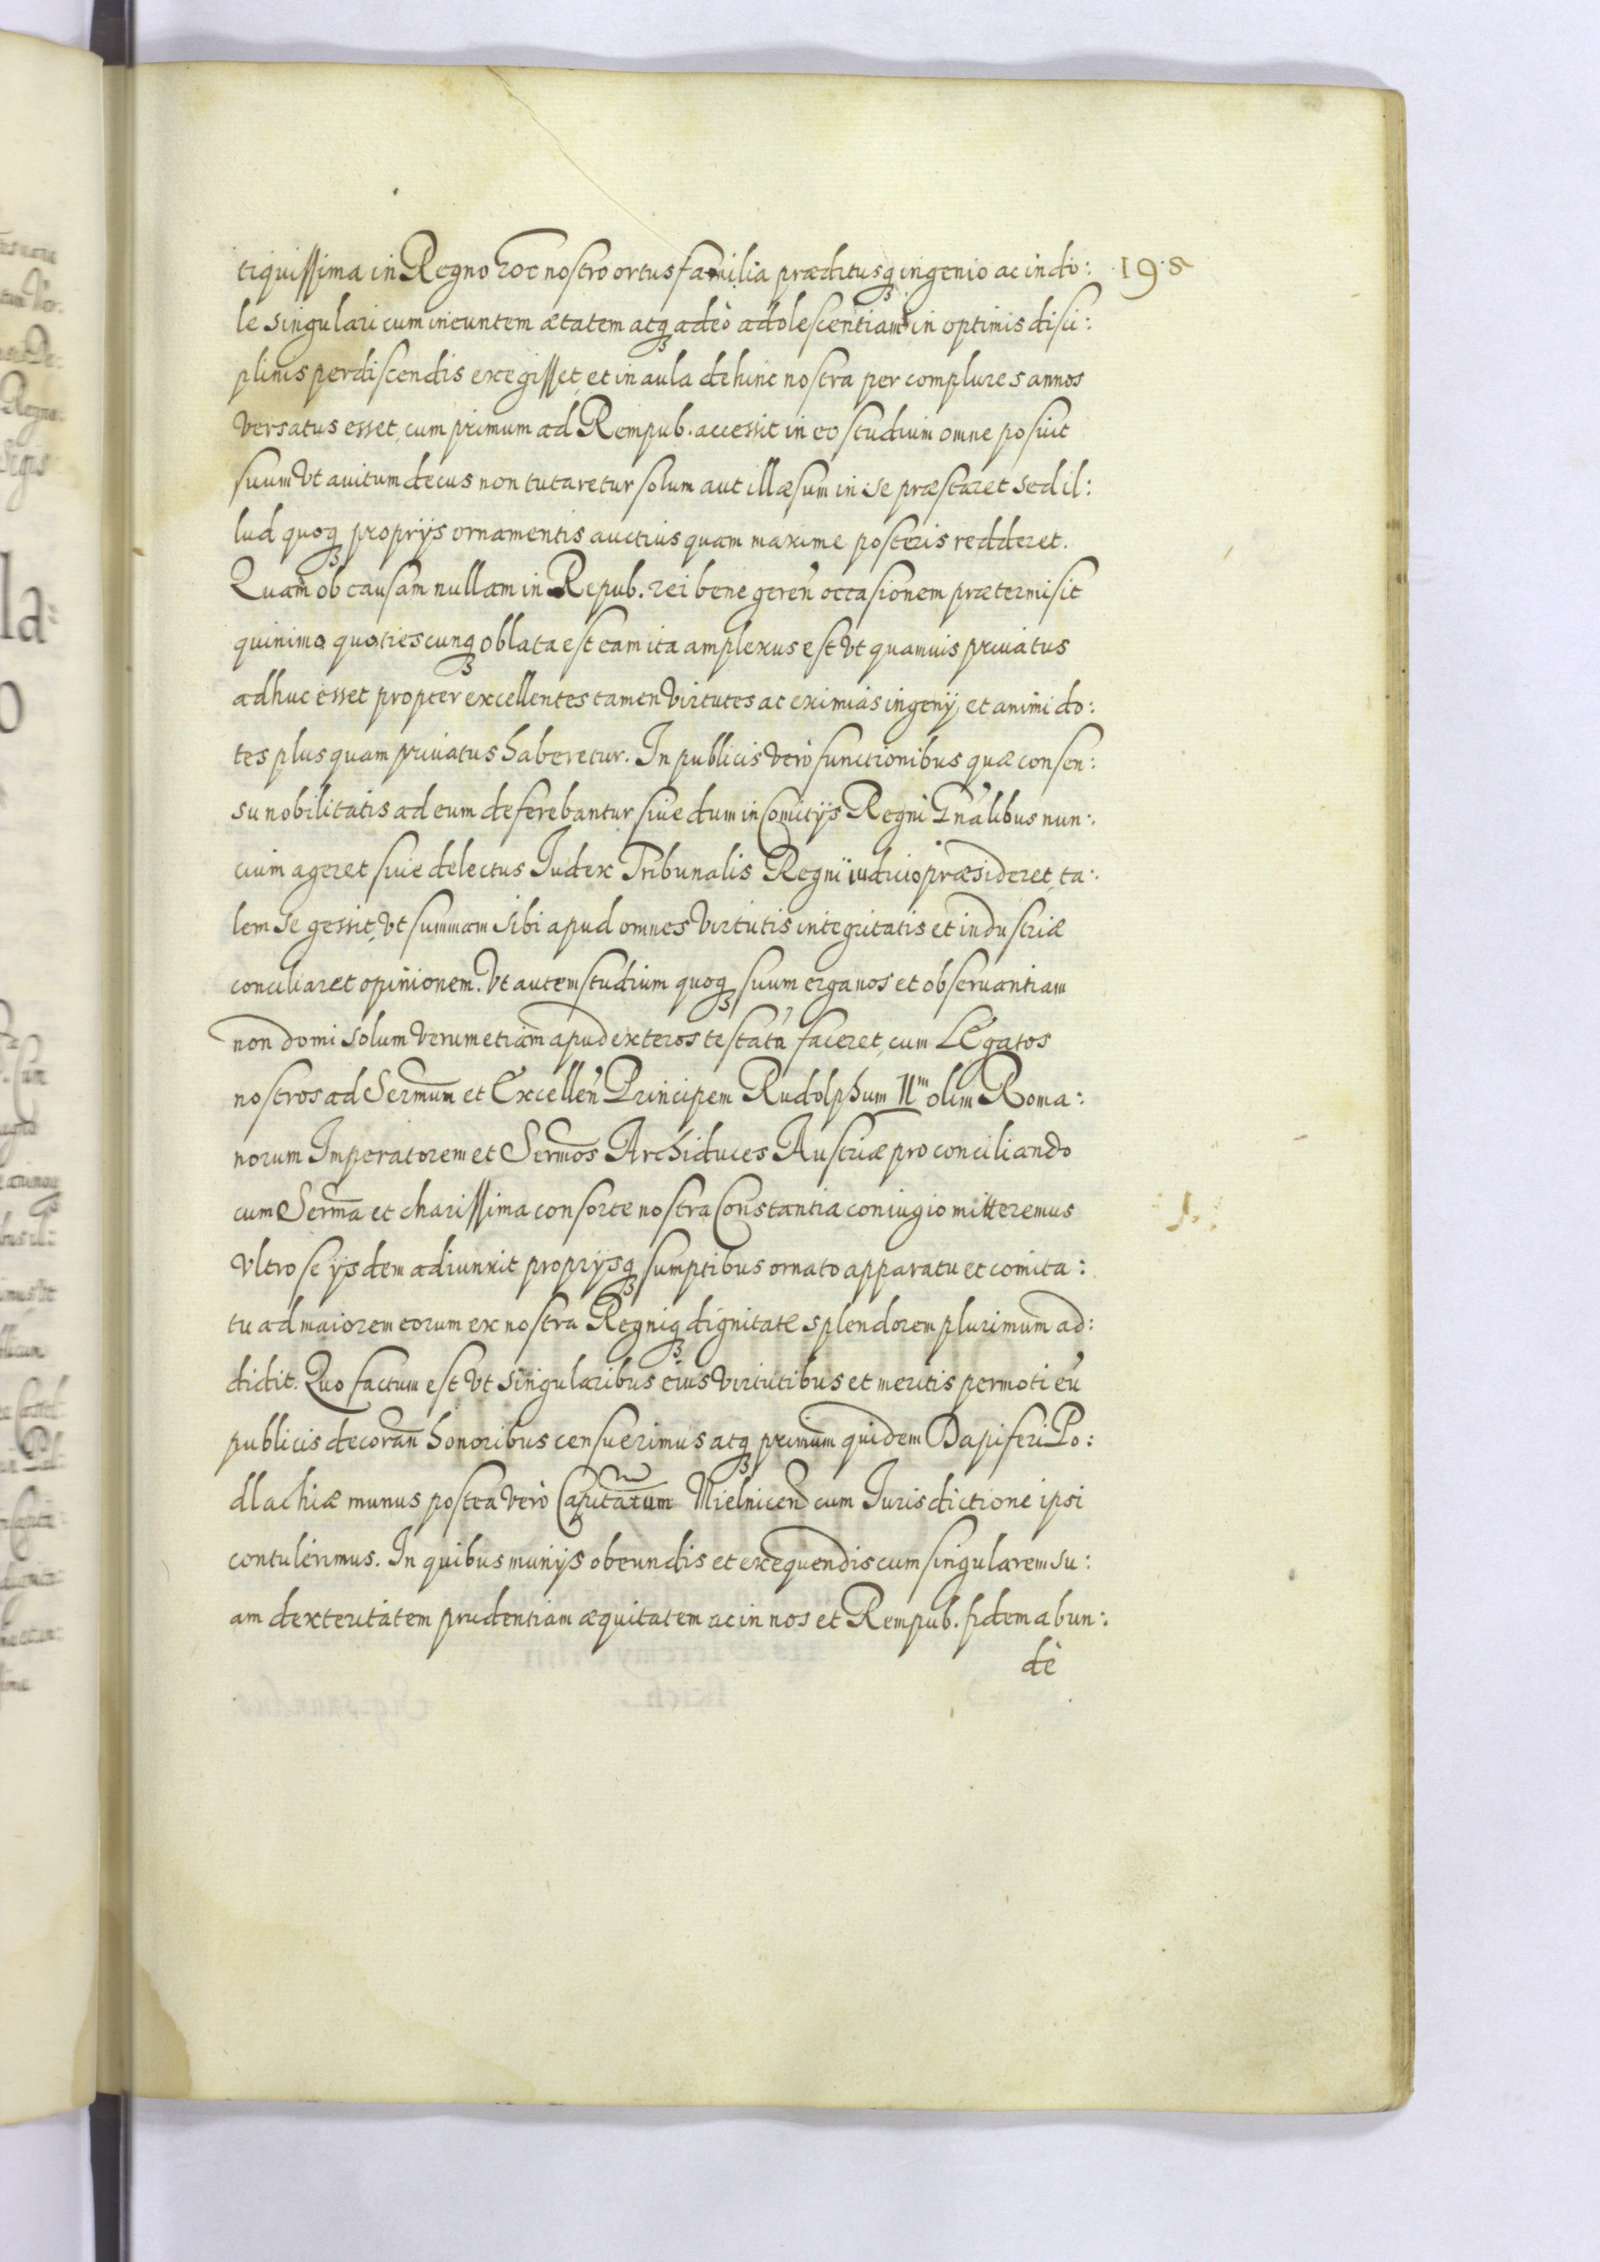 tiquissima in Regno hoc nostro ortus familia præditusq̃ ingenio ac indo:
198
le singulari cum ineuntem ætatem atq̃ adeò adolescentiam in optimis disci:
plinis perdiscendis exegisset, et in aula dehinc nostra per complures annos
versatus esset, cum primum ad Rempub. accessit in eo studium omne posuit
suum Vt auitum decus non tutaretur solum aut illæsum in se præstaret sed il:
lud quoq̃ proprijs ornamentis auctius quam maxime posteris redderet.
Quam ob causam nullam in Repub. rei bene geren̄ occasionem prætermisit
quinimo quotiescunq̃ oblata est eam ita amplexus est Vt quamuis priuatus
adhuc esset propter excellentes tamen Virtutes ac eximias ingenij, et animi do:
tes plusquam priuatus haberetur. In publicis Verò functionibus quæ consen:
su nobilitatis ad eum deferebantur siue dum in Comitijs Regni Gn̄alibus nun:
cium ageret siue delectus Iudex Tribunalis Regni iudicio præsideret, ta:
lem se gessit, Vt summam sibi apud omnes Virtutis integritatis et industriæ
conciliaret opinionem. Vt autem studium quoq̃ suum erga nos et obseruantiam
non domi solum Verum etiam apud exteros testatū faceret, cum Legatos
nostros ad Sermum et Excellen̄ Principem Rudolphum IIᵐ olim Roma:
norum Imperatorem et Sermos Archiduces Austriæ pro conciliando
cum Serma et charissima consorte nostra Constantia coniugio mitteremus
Vltro se ijsdem adiunxit proprijsq̃ sumptibus ornato apparatu et comita:
tu ad maiorem eorum ex nostra Regniq̃ dignitate splendorem plurimum ad:
didit. Quo factum est Vt singularibus eius Virtutibus et meritis permoti eū
publicis decoran̄ honoribus censuerimus atq̃ primum quidem Dapiferi Po:
dlachiæ munus postea Verò Capitatum Mielnicen̄ cum Iurisdictione ipsi
contulerimus. In quibus munijs obeundis et exequendis cum singularem su:
am dexteritatem prudentiam æquitatem ac in nos et Rempub. fidem abun:
dè